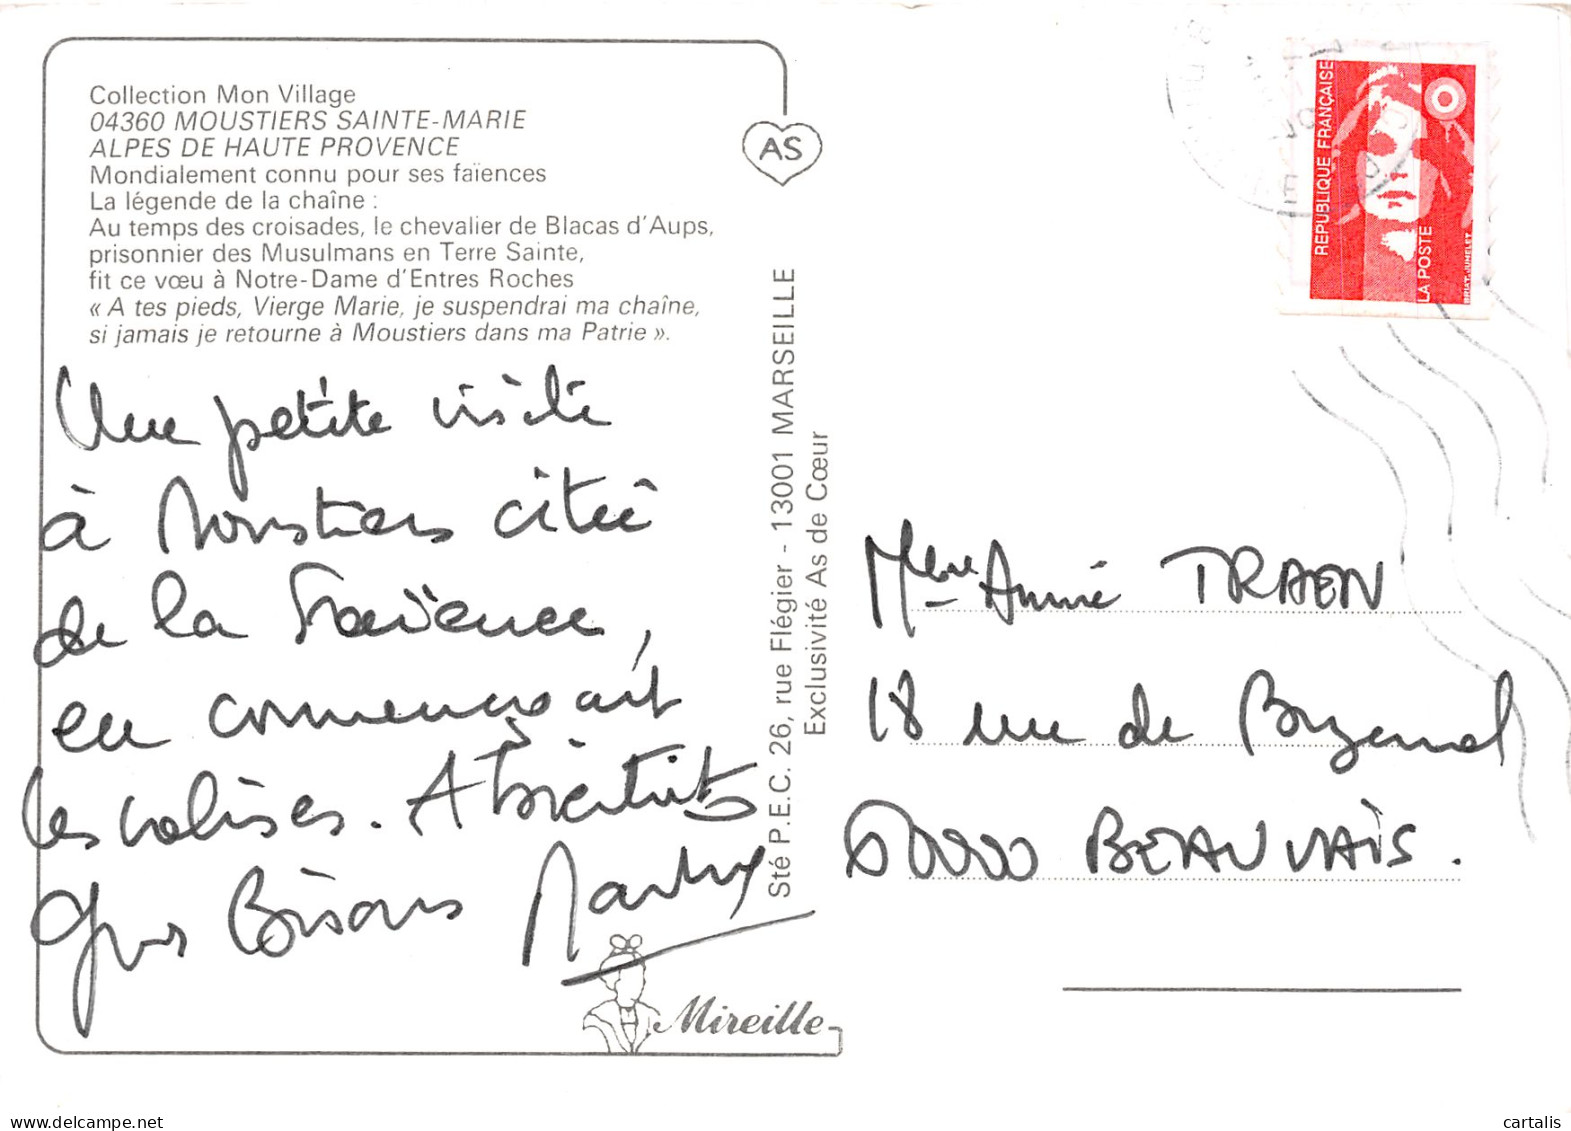 Collection Mon Village
04360 MOUSTIERS SAINTE-MARIE
ALPES DE HAUTE PROVENCE
Mondialement connu pour ses faïences
La légende de la chaîne :
Au temps des croisades, le chevalier de Blacas d'Aups,
prisonnier des Musulmans en Terre Sainte,
fit ce vœu à Notre-Dame d'Entres Roches
« A tes pieds, Vierge Marie, je suspendrai ma chaîne,
si jamais je retourne à Moustiers dans ma Patrie ».
AS
Une petite visite
à Moustiers citée
de la Faïence,
en commençant
les valises. A bientôt
Gros Bisous
Mireille
Sté P.E.C. 26, rue Flégier - 13001 MARSEILLE
Exclusivité As de Cœur
REPUBLIQUE FRANÇAISE
LA POSTE
BRIAT-JUMELET
Annie TRAEN
18 rue de
60000 BEAUVAIS.
cartalis